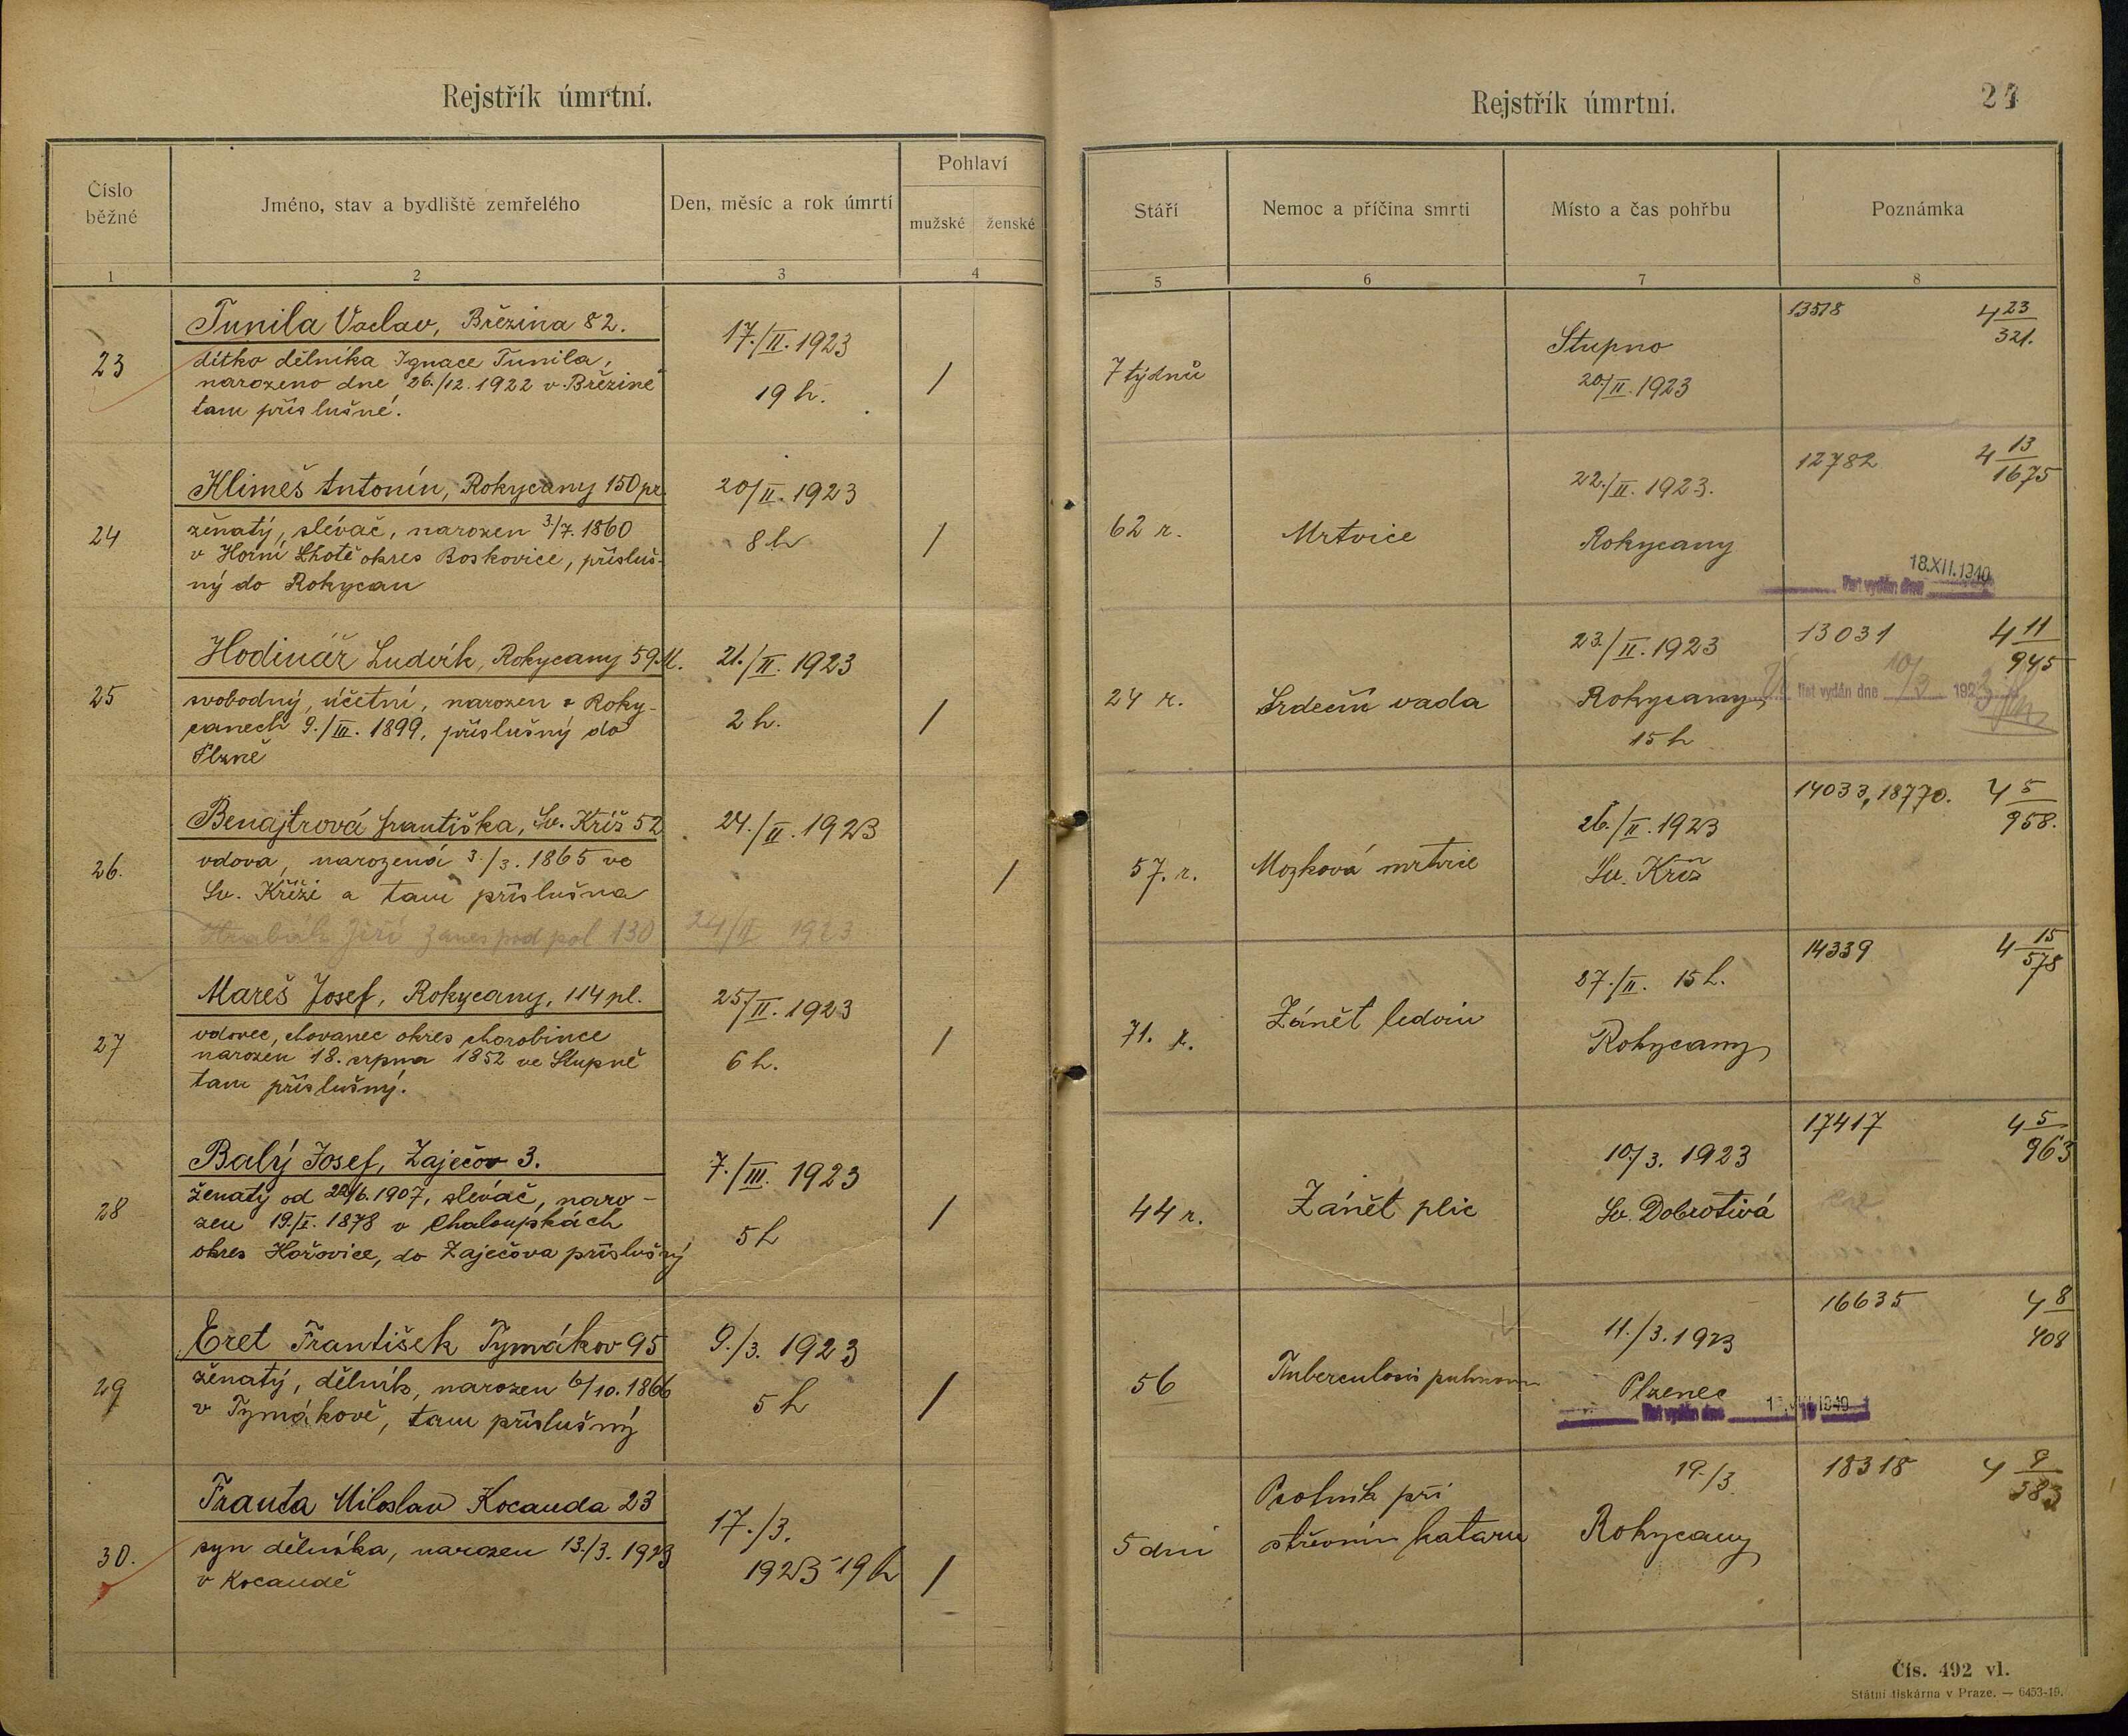 Rejstřík úmrtní.
Číslo běžné
Jméno, stav a bydliště zemřelého
Den, měsíc a rok úmrtí
Pohlaví
mužské
ženské
1
2
3
4
Tunila Vaclav, Březina 82.
23
dítko dělníka Ignace Tunila,
narozeno dne 26./12. 1922 v Březině
tam příslušné.
17./II. 1923
19 h.
/
Klimeš Antonín, Rokycany 150 pr.
24
ženatý, slévač, narozen 3./7. 1860
v Horní Lhotě okres Boskovice, přísluš-
ný do Rokycan
20/II. 1923
8 h
/
Hodinář Ludvík, Rokycany 59.M.
25
svobodný, účetní, narozen v Roky-
canech 9./III. 1899, příslušný do
Plzně
21./II. 1923
2 h.
/
Benajtrová Františka, Sv. Kříž 52
26.
vdova, narozená 3./3. 1865 ve
Sv. Kříži a tam příslušna
24./II. 1923
/
Jiří 130
24/II 1923
Mareš Josef, Rokycany, 114 pl.
27
vdovec, chovanec okres chorobince
narozen 18. srpna 1852 ve Stupně
tam příslušný.
25/II. 1923
6 h.
/
Balý Josef, Zaječov 3.
28
ženatý od 22/6. 1907, slévač, naro-
zen 19./I. 1878 v Chaloupkách
okres Hořovice, do Zaječova příslušný
7./III. 1923
5 h
/
Eret František Tymákov 95
29
ženatý, dělník, narozen 6/10. 1866
v Tymákově, tam příslušný
9./3. 1923
5 h
/
Franta Miloslav Kocanda 23
30.
syn dělníka, narozen 13./3. 1923
v Kocandě
17./3.
1923 - 19 h
/
Rejstřík úmrtní.
24
Stáří
Nemoc a příčina smrti
Místo a čas pohřbu
Poznámka
5
6
7
8
7 týdnů
Stupno
20./II. 1923
13518
4 23/321.
62 r.
Mrtvice
22./II. 1923.
Rokycany
12782
4 13/1675
18.XII.1940
list vydán dne
24 r.
Srdeční vada
23./II. 1923
Rokycany
15 h
13031
4 11/945
list vydán dne 10/3 1923
57. r.
Mozková mrtvice
26./II. 1923
Sv. Kříž
14033, 18770.
4 5/958.
71. r.
Zánět ledvin
27./II. 15 h.
Rokycany
14339
4 15/578
44 r.
Zánět plic
10./3. 1923
Sv. Dobrotivá
17417
4 5/963
56
Tuberculosis pulmonum
11./3. 1923
Plzenec
list vydán dne
16635
4 8/408
5 dní
Psotník při
střevním kataru
19./3.
Rokycany
18318
4 9/383
Čís. 492 vl.
Státní tiskárna v Praze. — 6453-19.